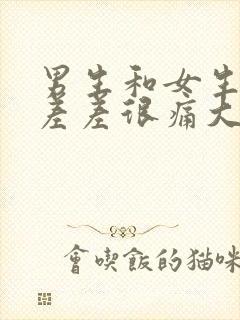 男生和女生
差差很痛大
會喫飯的猫咪